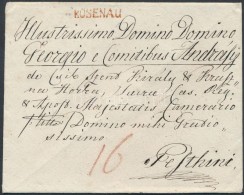 ROSENAU
Illustrissimo Domino Domino
Georgio e Comitibus Andrassy
de Csik Szent Kiraly &
na Horka, Sacrae Caes. Reg.
& Apost. Majestatis Camerario
Domino mihi Gratio
sissimo
16
Pesthini